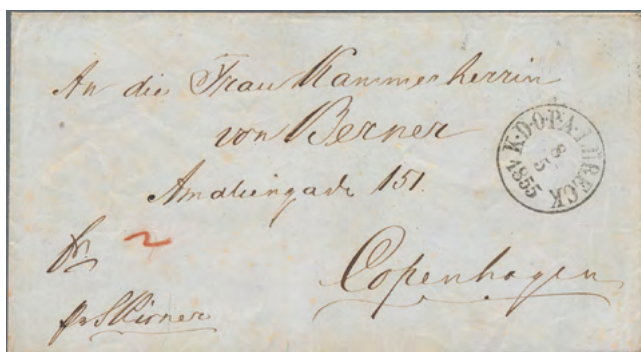 An die Frau Kammerherrin
von Berner
Amaliengade 151.
K.D.O.P.A. LÜBECK
8/5
1855
fr
2
Copenhagen
pr Skirner